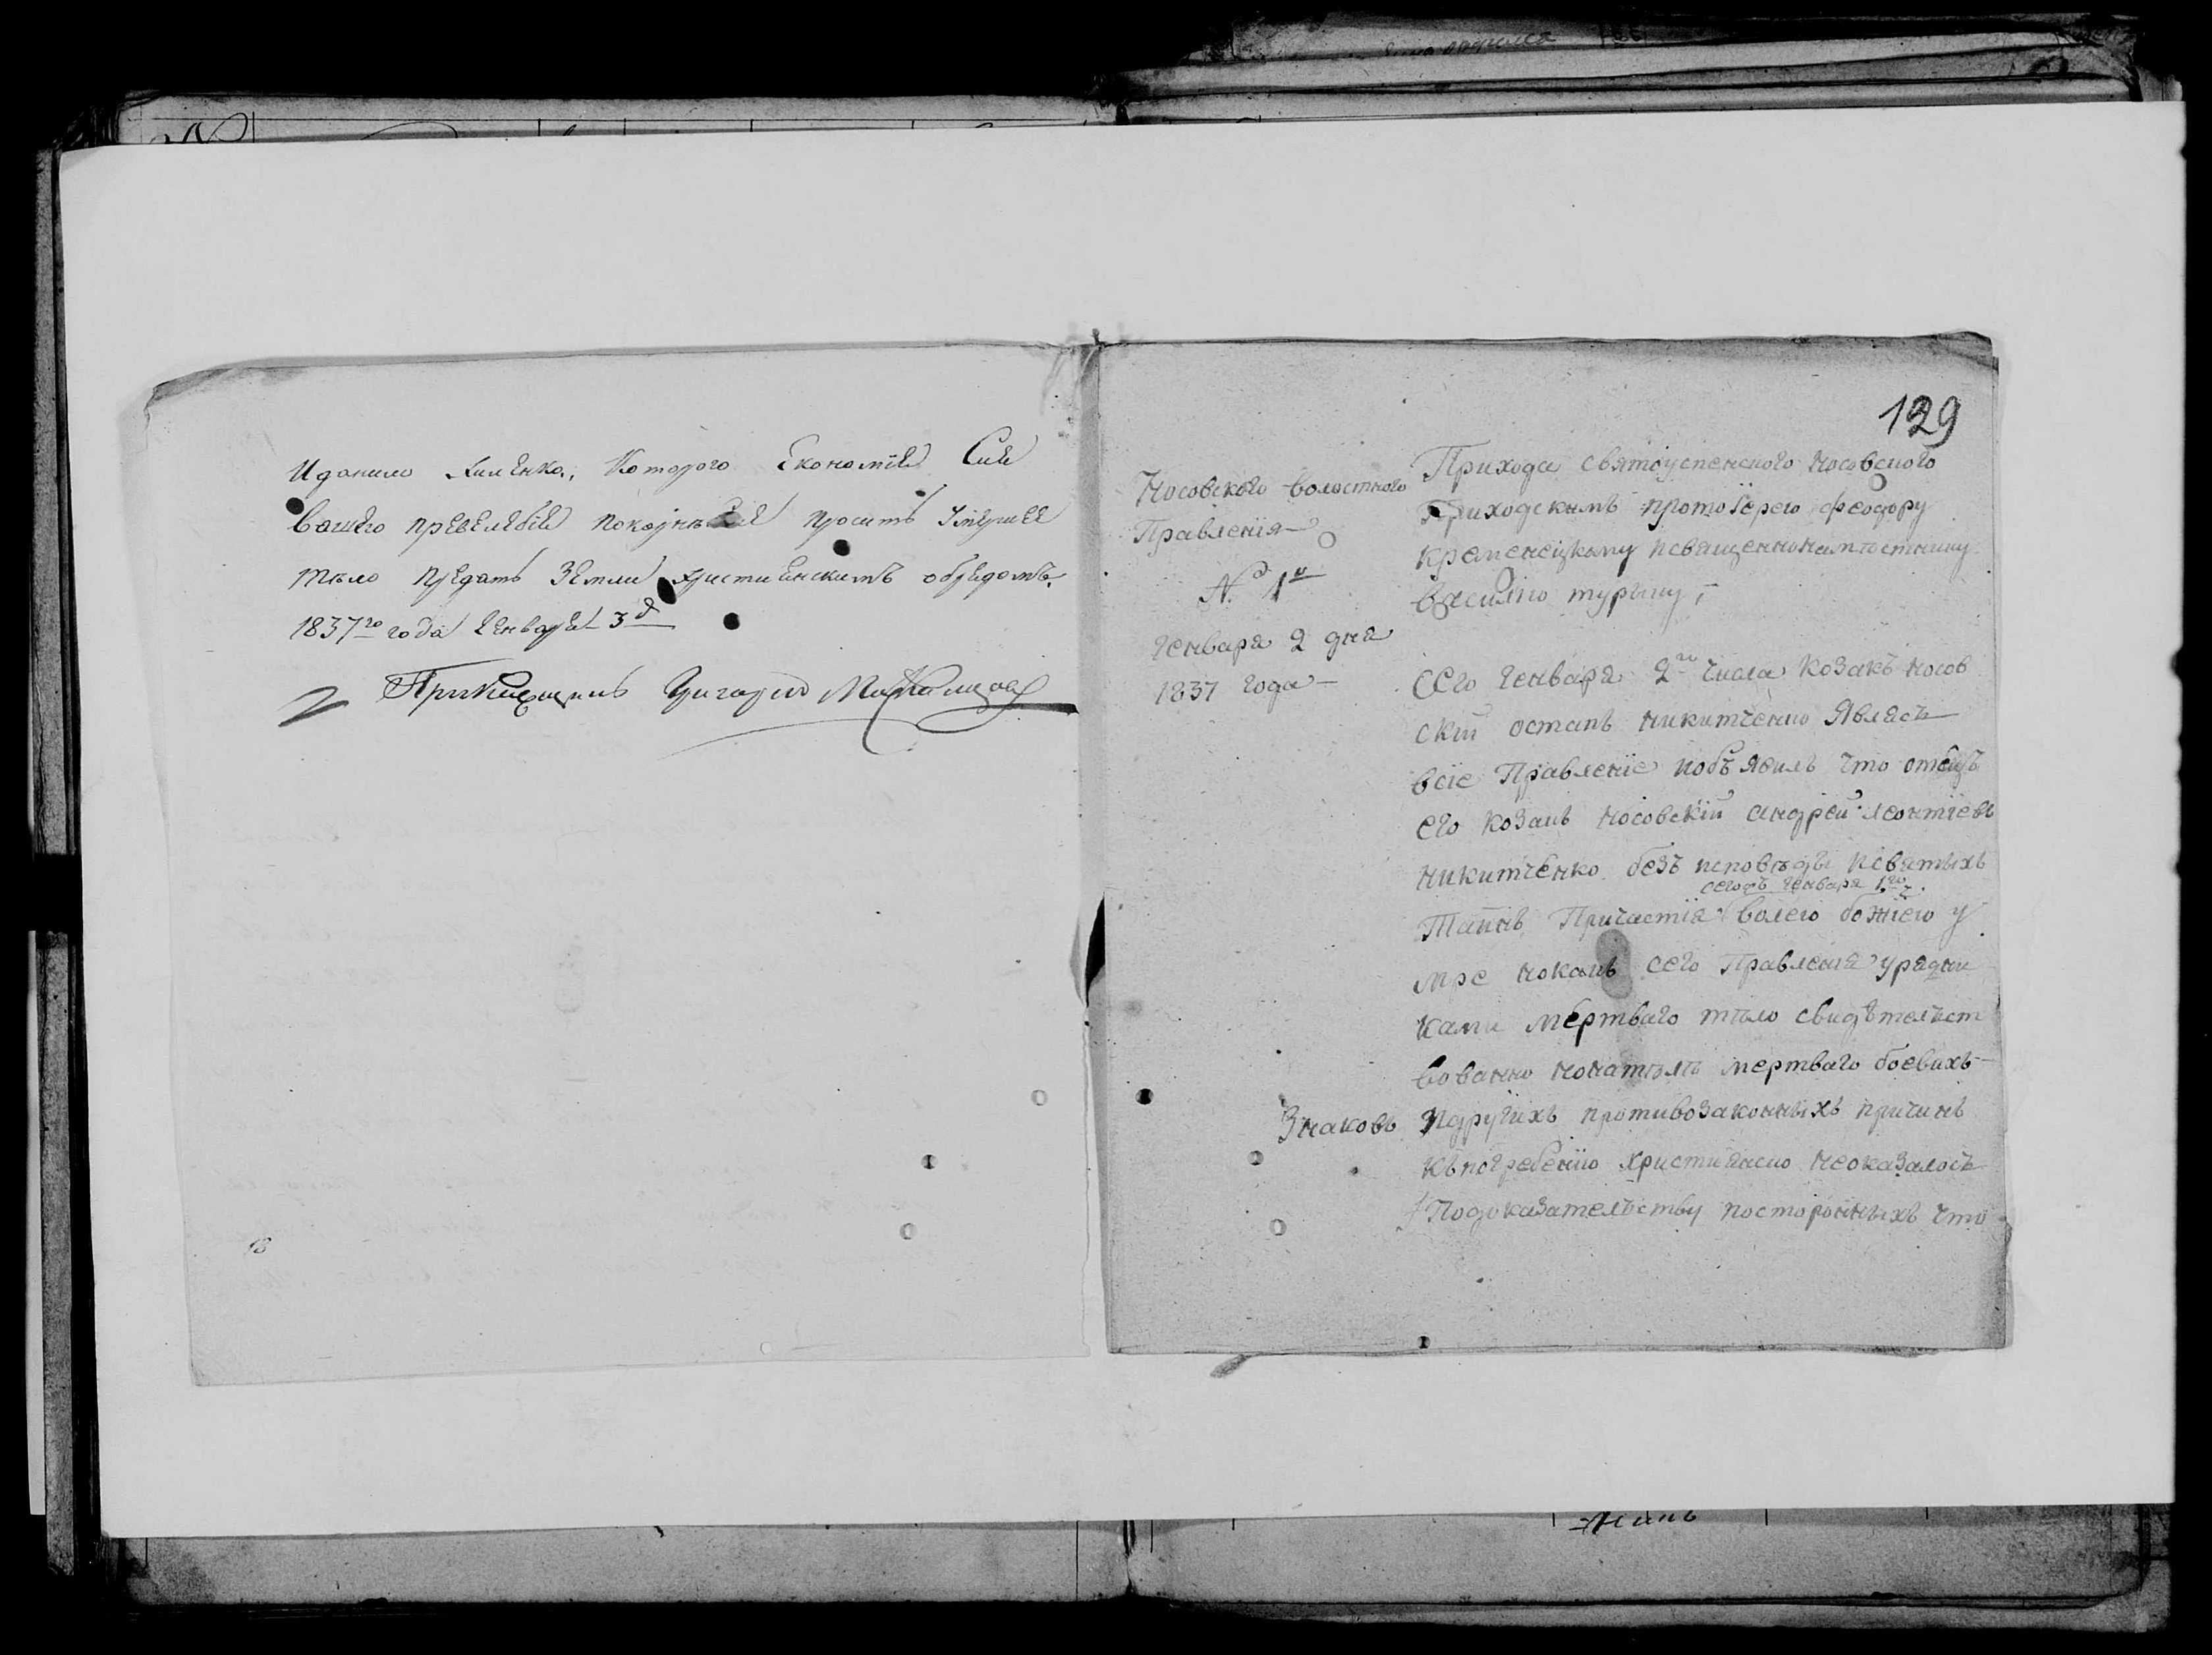 И данило Хименко, Которого Економія Сия
вашего преподобія покорнейше просить Умершее
тело предать Земли христиенскимъ обрядомъ.
1837го года Генваря 3 д
Прикащикъ Григорій
18
129
Носовского волостного
Правленія
№ 1й
Генваря 2 дня
1837 года
Прихода святоуспенского Носовского
Приходскимъ протоіерею Феодору
Кременецкому исвященнонамѣстнику
Василію турыну,
Сего Генваря 2го числа козакъ Носов
скій остапъ никитченко Являсь
всіе Правленіе иобъявилъ что отецъ
его козакъ Носовскій андрей леонтіевъ
никитченко безъ исповѣди исвятыхъ
сегожъ Генваря 1го ч.
Таинъ Причастія волею божіею у
мре нокакъ сего Правленія урядни
ками мертваго тѣло свидѣтельст
вованно нонатѣлѣ мертваго боевихъ
Знаковъ идругихъ противозаконныхъ причинъ
къпогребенію християнско неоказалось
Подоказательству посторонныхъ что